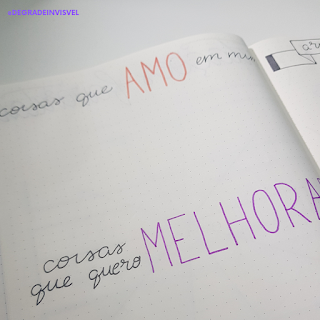 @DEGRADEINVISVEL
coisas que AMO em mim
coisas
que quero MELHORA